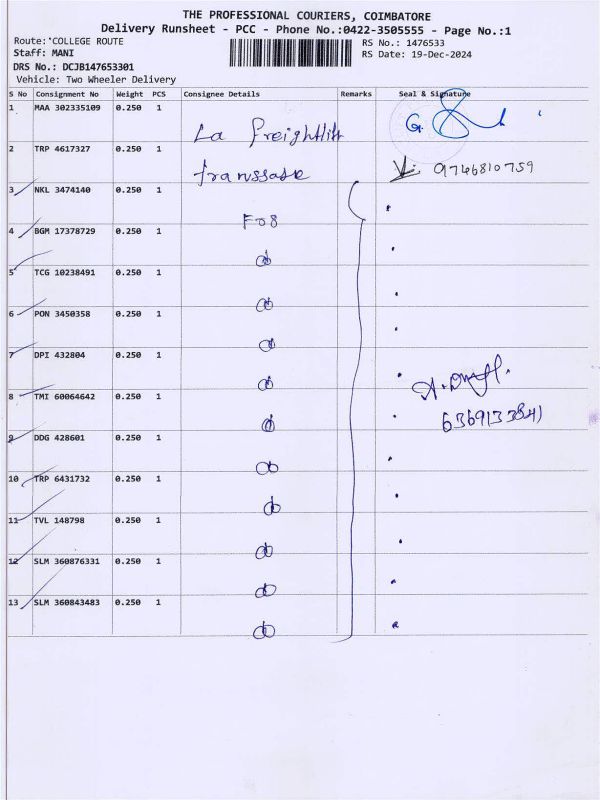 THE PROFESSIONAL COURIERS, COIMBATORE
Delivery Runsheet - PCC - Phone No.:0422-3505555 - Page No.:1
Route:'COLLEGE ROUTE
RS No.: 1476533
Staff: MANI
RS Date: 19-Dec-2024
DRS No.: DCJB147653301
Vehicle: Two Wheeler Delivery
S No Consignment No Weight PCS Consignee Details Remarks Seal & Signature
1 MAA 302335109 0.250 1 La
2 TRP 4617327 0.250 1 9746810759
3 NKL 3474140 0.250 1
4 BGM 17378729 0.250 1
5 TCG 10238491 0.250 1
6 PON 3450358 0.250 1
7 DPI 432804 0.250 1
8 TMI 60064642 0.250 1
9 DDG 428601 0.250 1
10 TRP 6431732 0.250 1
11 TVL 148798 0.250 1
12 SLM 360876331 0.250 1
13 SLM 360843483 0.250 1